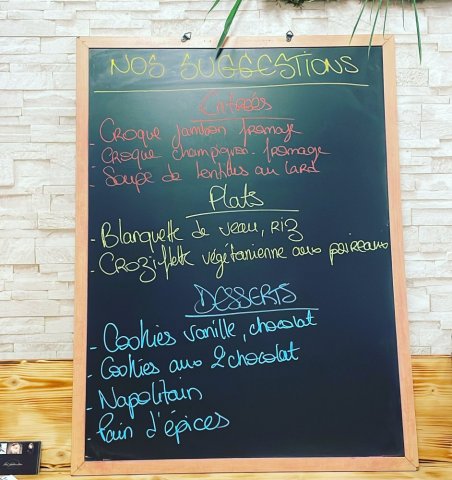 NOS SUGGESTIONS
Entrées
- Croque jambon fromage
- Croque champignon fromage
- Soupe de lentilles au lard
Plats
- Blanquette de veau, riz
- Crozi-flette végétarienne aux poireaux
DESSERTS
- Cookies vanille, chocolat
- Cookies aux 2 chocolat
- Napolitain
- Pain d'épices